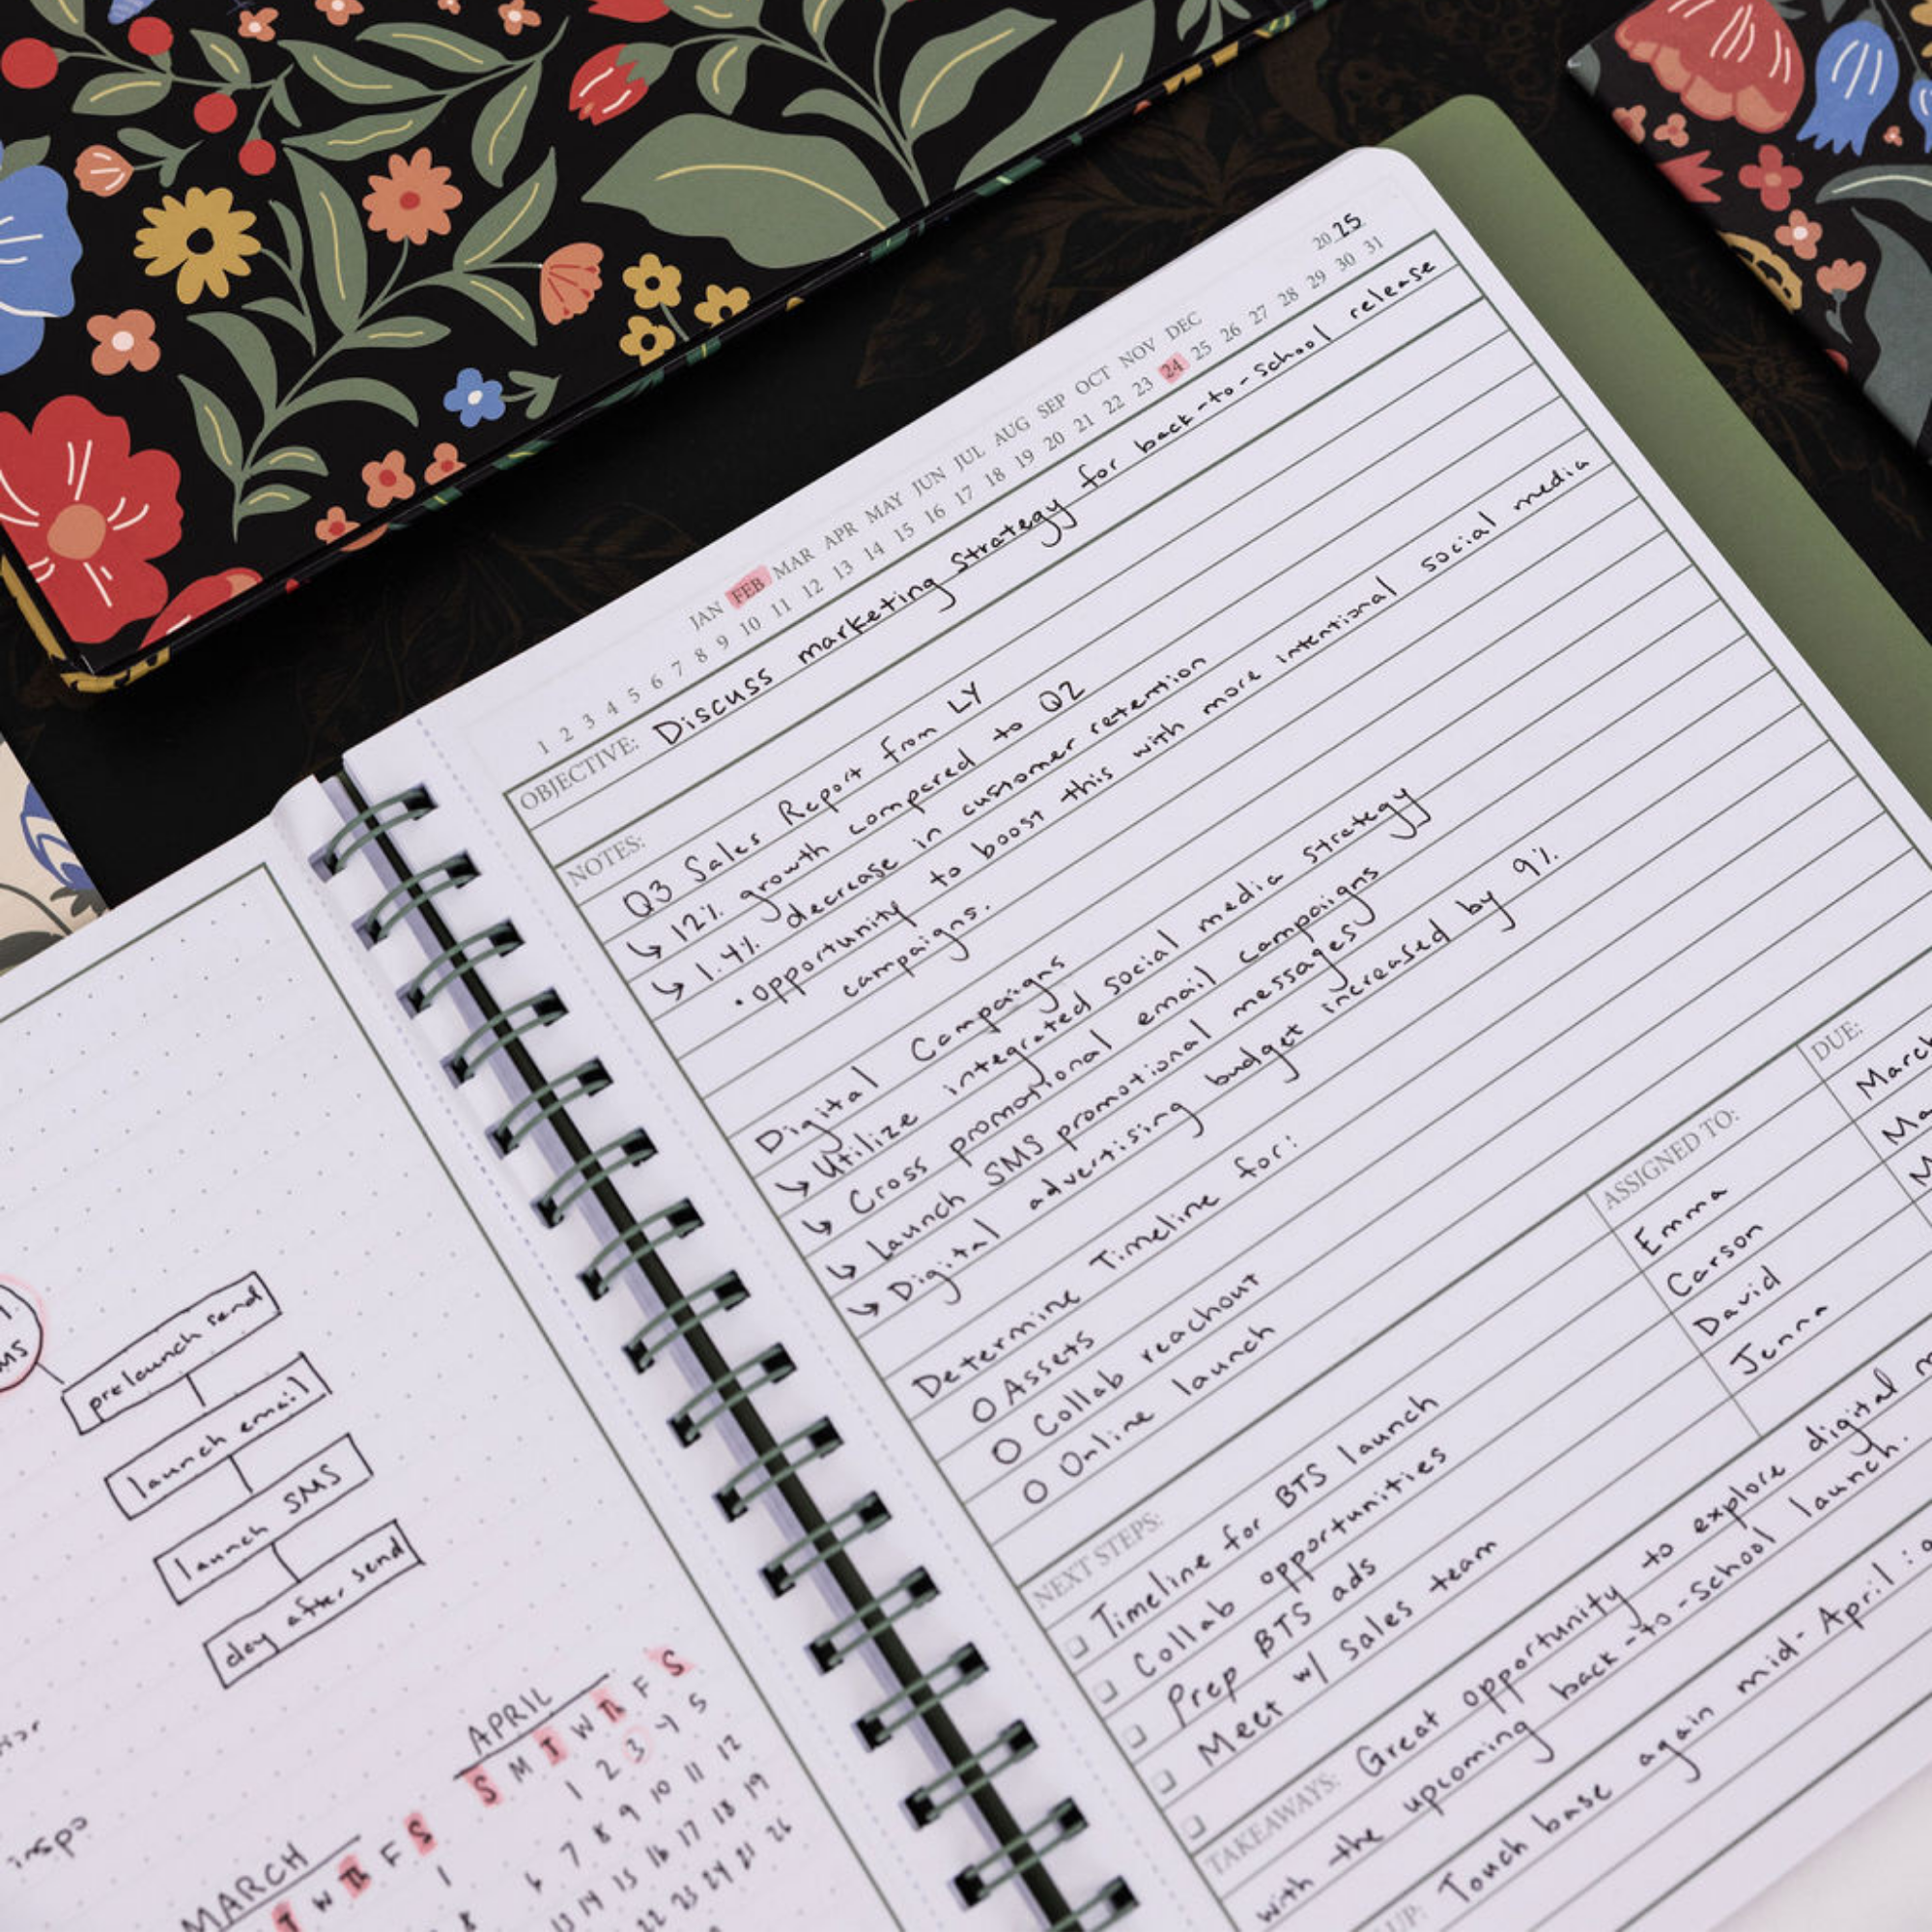 1.
MS
prelaunch send
launch email
launch SMS
day after send
inspo
MARCH
T W Th F S
1
8
APRIL
S M T W Th F S
1 2 3 4 5
6 7 8 9 10 11 12
13 14 15 16 17 18 19
22 23 24 25 26
2025
JAN FEB MAR APR MAY JUN JUL AUG SEP OCT NOV DEC
1 2 3 4 5 6 7 8 9 10 11 12 13 14 15 16 17 18 19 20 21 22 23 24 25 26 27 28 29 30 31
OBJECTIVE: Discuss marketing strategy for back-to-school release
NOTES:
Q3 Sales Report from LY
↳ 12% growth compared to Q2
↳ 1.4% decrease in customer retention
• opportunity to boost this with more intentional social media
campaigns.
Digital Campaigns
↳ Utilize integrated social media strategy
↳ Cross promotional email campaigns
↳ Launch SMS promotional messages
↳ Digital advertising budget increased by 9%
Determine Timeline for:
O Assets
O Collab reachout
O Online launch
NEXT STEPS: ASSIGNED TO: DUE:
Timeline for BTS launch Emma March
Collab opportunities Carson
Prep BTS ads David
Meet w/ sales team Jenna
TAKEAWAYS: Great opportunity to explore digital
with the upcoming back-to-school launch.
UP: Touch base again mid-April :